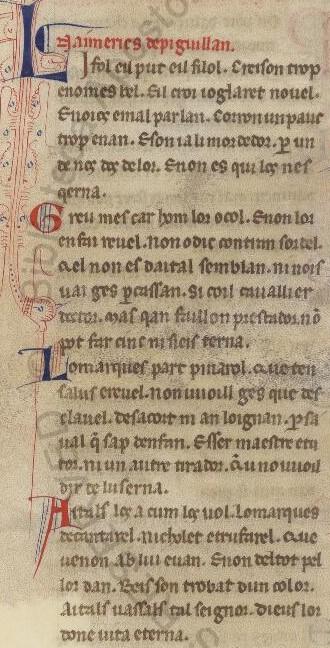 Naimerics depiguillan.
LI fol eil put eil filol. Creison trop
enomes bel. Eil croi ioglaret nouel.
Enoios emal parlan. Corron un pauc
trop enan. Eson ia li mordedor. p̱ un
de nos dos delor. Enon es qui los nes
qerna.
Greu mes car hom lor o col. Enon lor
enfai reuel. Non o dic contra sordel.
Qel non es daital semblan. ni nois
uai ges p̱cassan. Si coil cauallier
doctor. Mas qan faillon prestador. nō
pot far cinc ni seis terna.
Lo marques part pinarol. Que ten
saluz ereuel. Non uuoill ges que des
clauel. descort ni an loignan. p̱ sa
ual q̄ sap denfan. Esser maestre etu
tor. ni un autre tirador. Q̄ u no uuoil
dir de luserna.
Aitals los a cum los uol. Lo marques
decantarel. Nicholet etrufarel. Que
uenon ab lui euan. Enon deltot pel
lor dan. Beis son trobat dun color.
Aitals uassals tal seignor. dieus lor
done uita eterna.